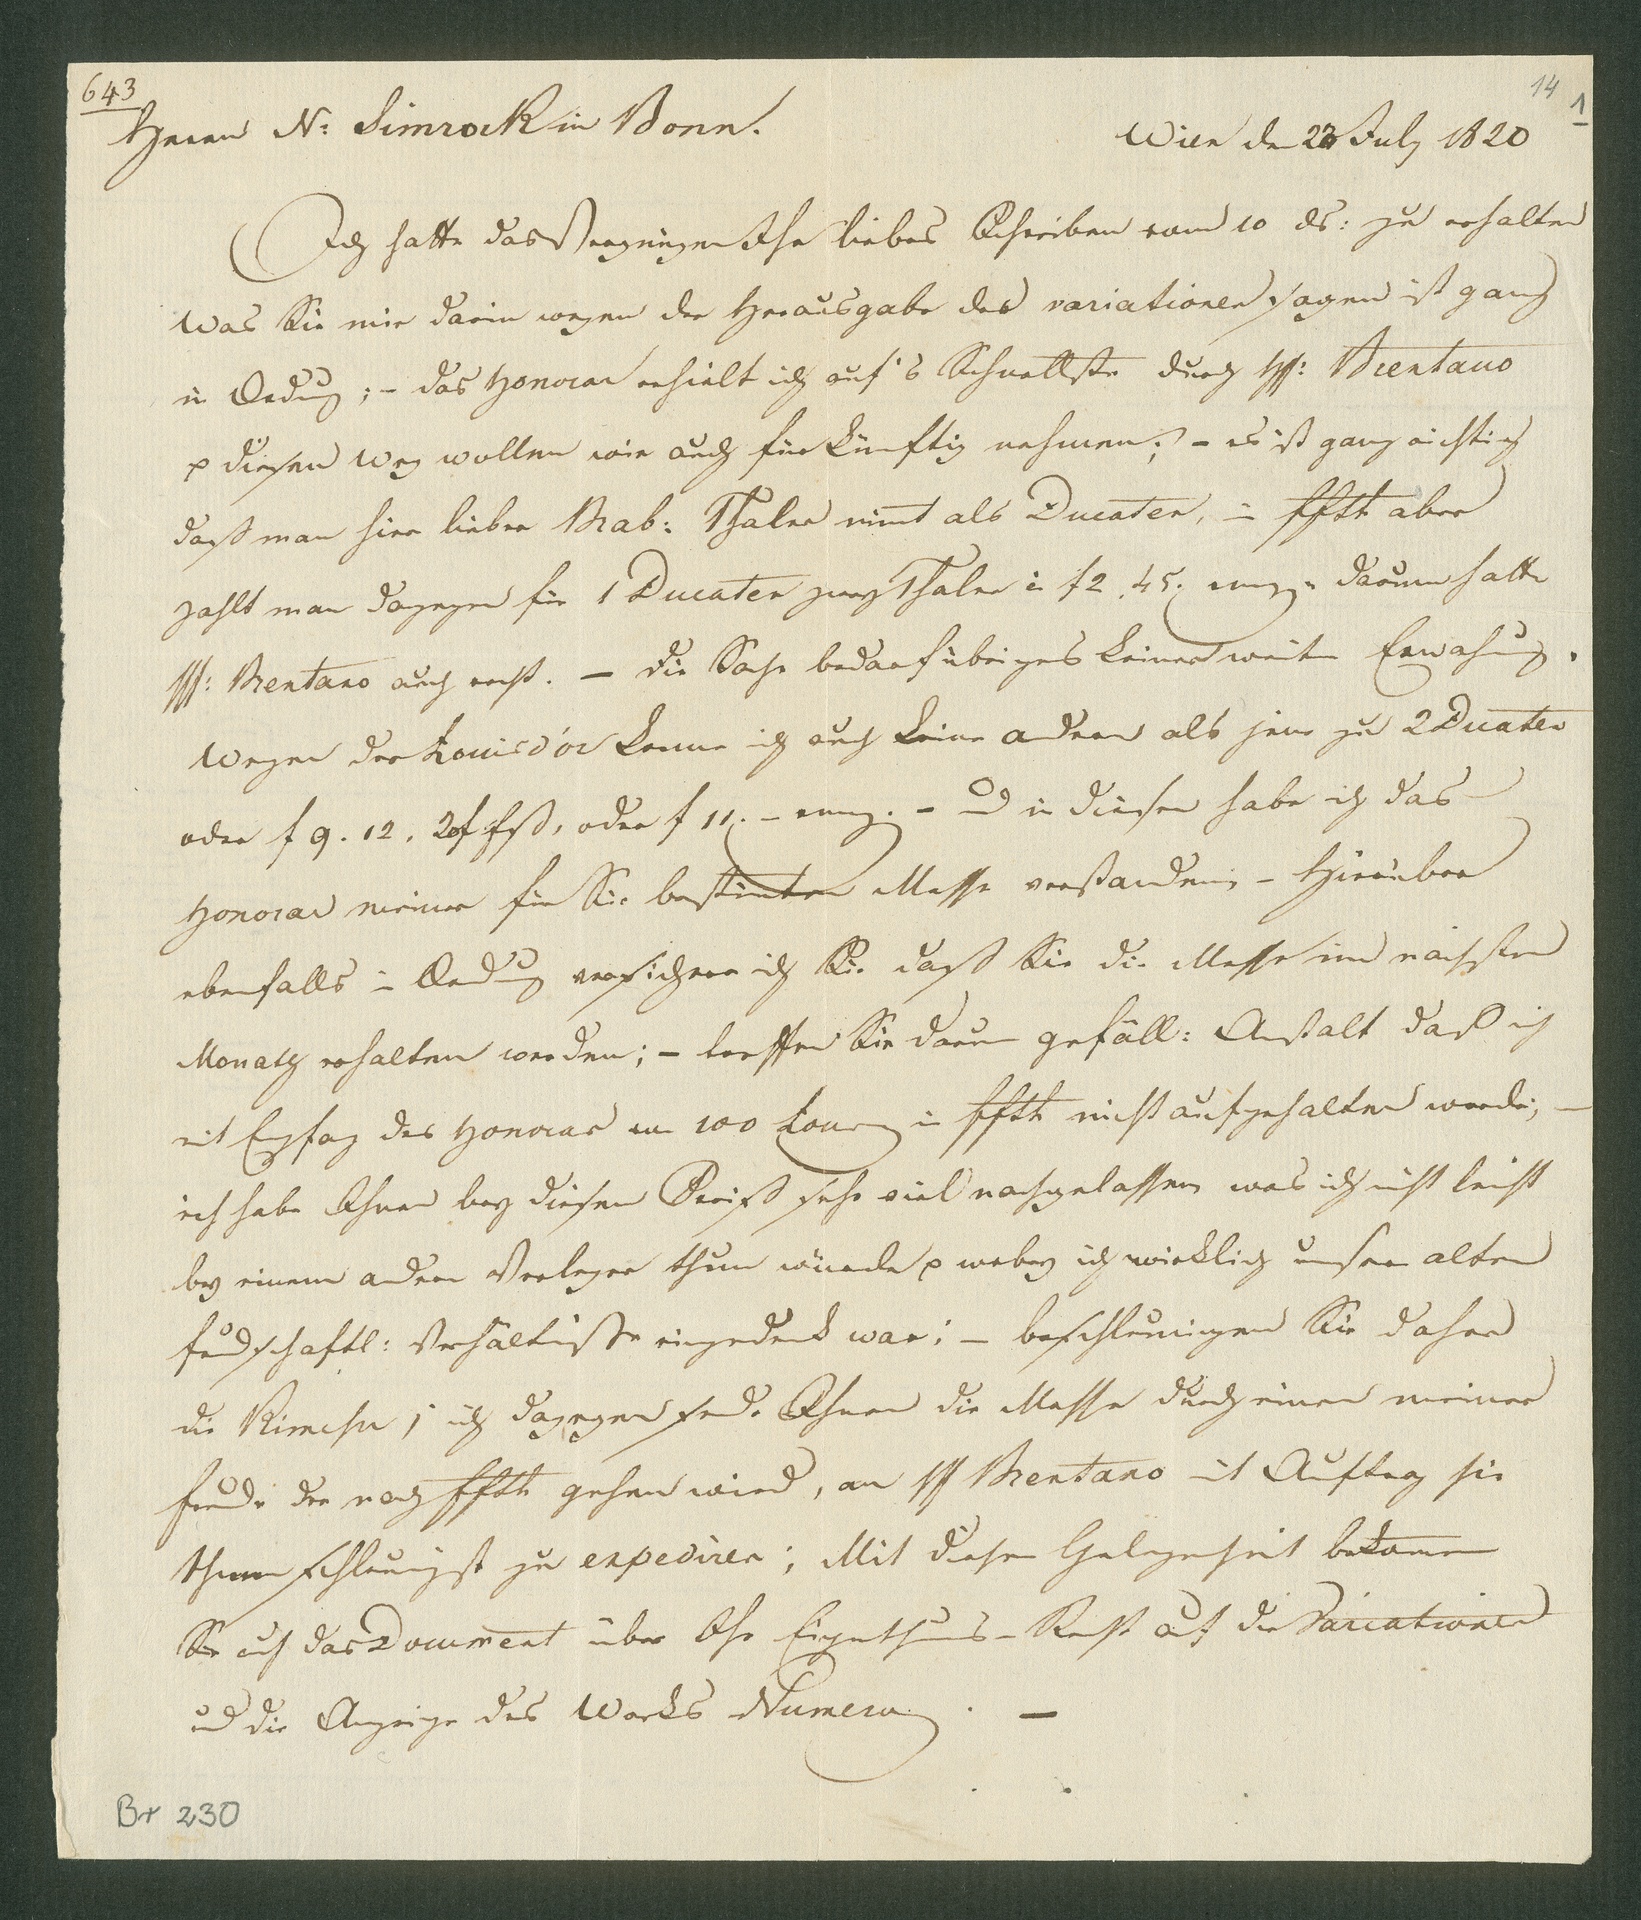 643
14
1
Herrn N: Simrock in Bonn.
Wien den 23 July 1820
Ich hatte das Vergnügen Ihr liebes Schreiben vom 10 ds: zu erhalten
Was Sie mir darin wegen der Herausgabe der variationen sagen ist ganz
in Ordnung; – das Honorar erhielt ich auf's Schnellste durch H: Brentano
diesen Weg wollen wir auch für künftig nehmen; – es ist ganz richtig
daß man hier lieber Brab: Thaler nimt als Ducaten, in ffth aber
zahlt man dagegen für 1 Ducaten zwey Thaler à f 2. 45. darum hatte
H: Brentano auch recht. – die Sache bedarf übrigens keiner weitern Erwähnung.
Wegen der Louisd'or kenne ich auch keine andern als jene zu 2 Ducaten
oder f 9. 12. oder f 11. – und in diesen habe ich das
Honorar meiner für Sie bestimten Messe verstanden; – Hierüber
ebenfalls in Ordnung versichere ich Sie daß Sie die Messe im nächsten
Monath erhalten werden; – treffen Sie darum gefäll: Anstalt daß ich
mit Empfang des Honorar von 100 Louis in ffth nicht aufgehalten werde; –
ich habe Ihnen bey diesem Preiß sehr viel nachgelassen was ich nicht leicht
bey einem andern Verleger thun würde wobey ich wirklich unserer alten
freundschaftl: Verhältniße eingedenk war; – beschleunigen Sie daher
die Rimesse; ich dagegen sende Ihnen die Messe durch einen meiner
Freunde der nach ffth gehen wird, an H Brentano mit Auftrag sie
Ihnen schleunigst zu expediren; Mit dieser Gelegenheit bekomen
Sie auch das Document über Ihr Eigenthums-Recht auf die Variationen
und die Anzeige des Werks Numero. –
Br 230